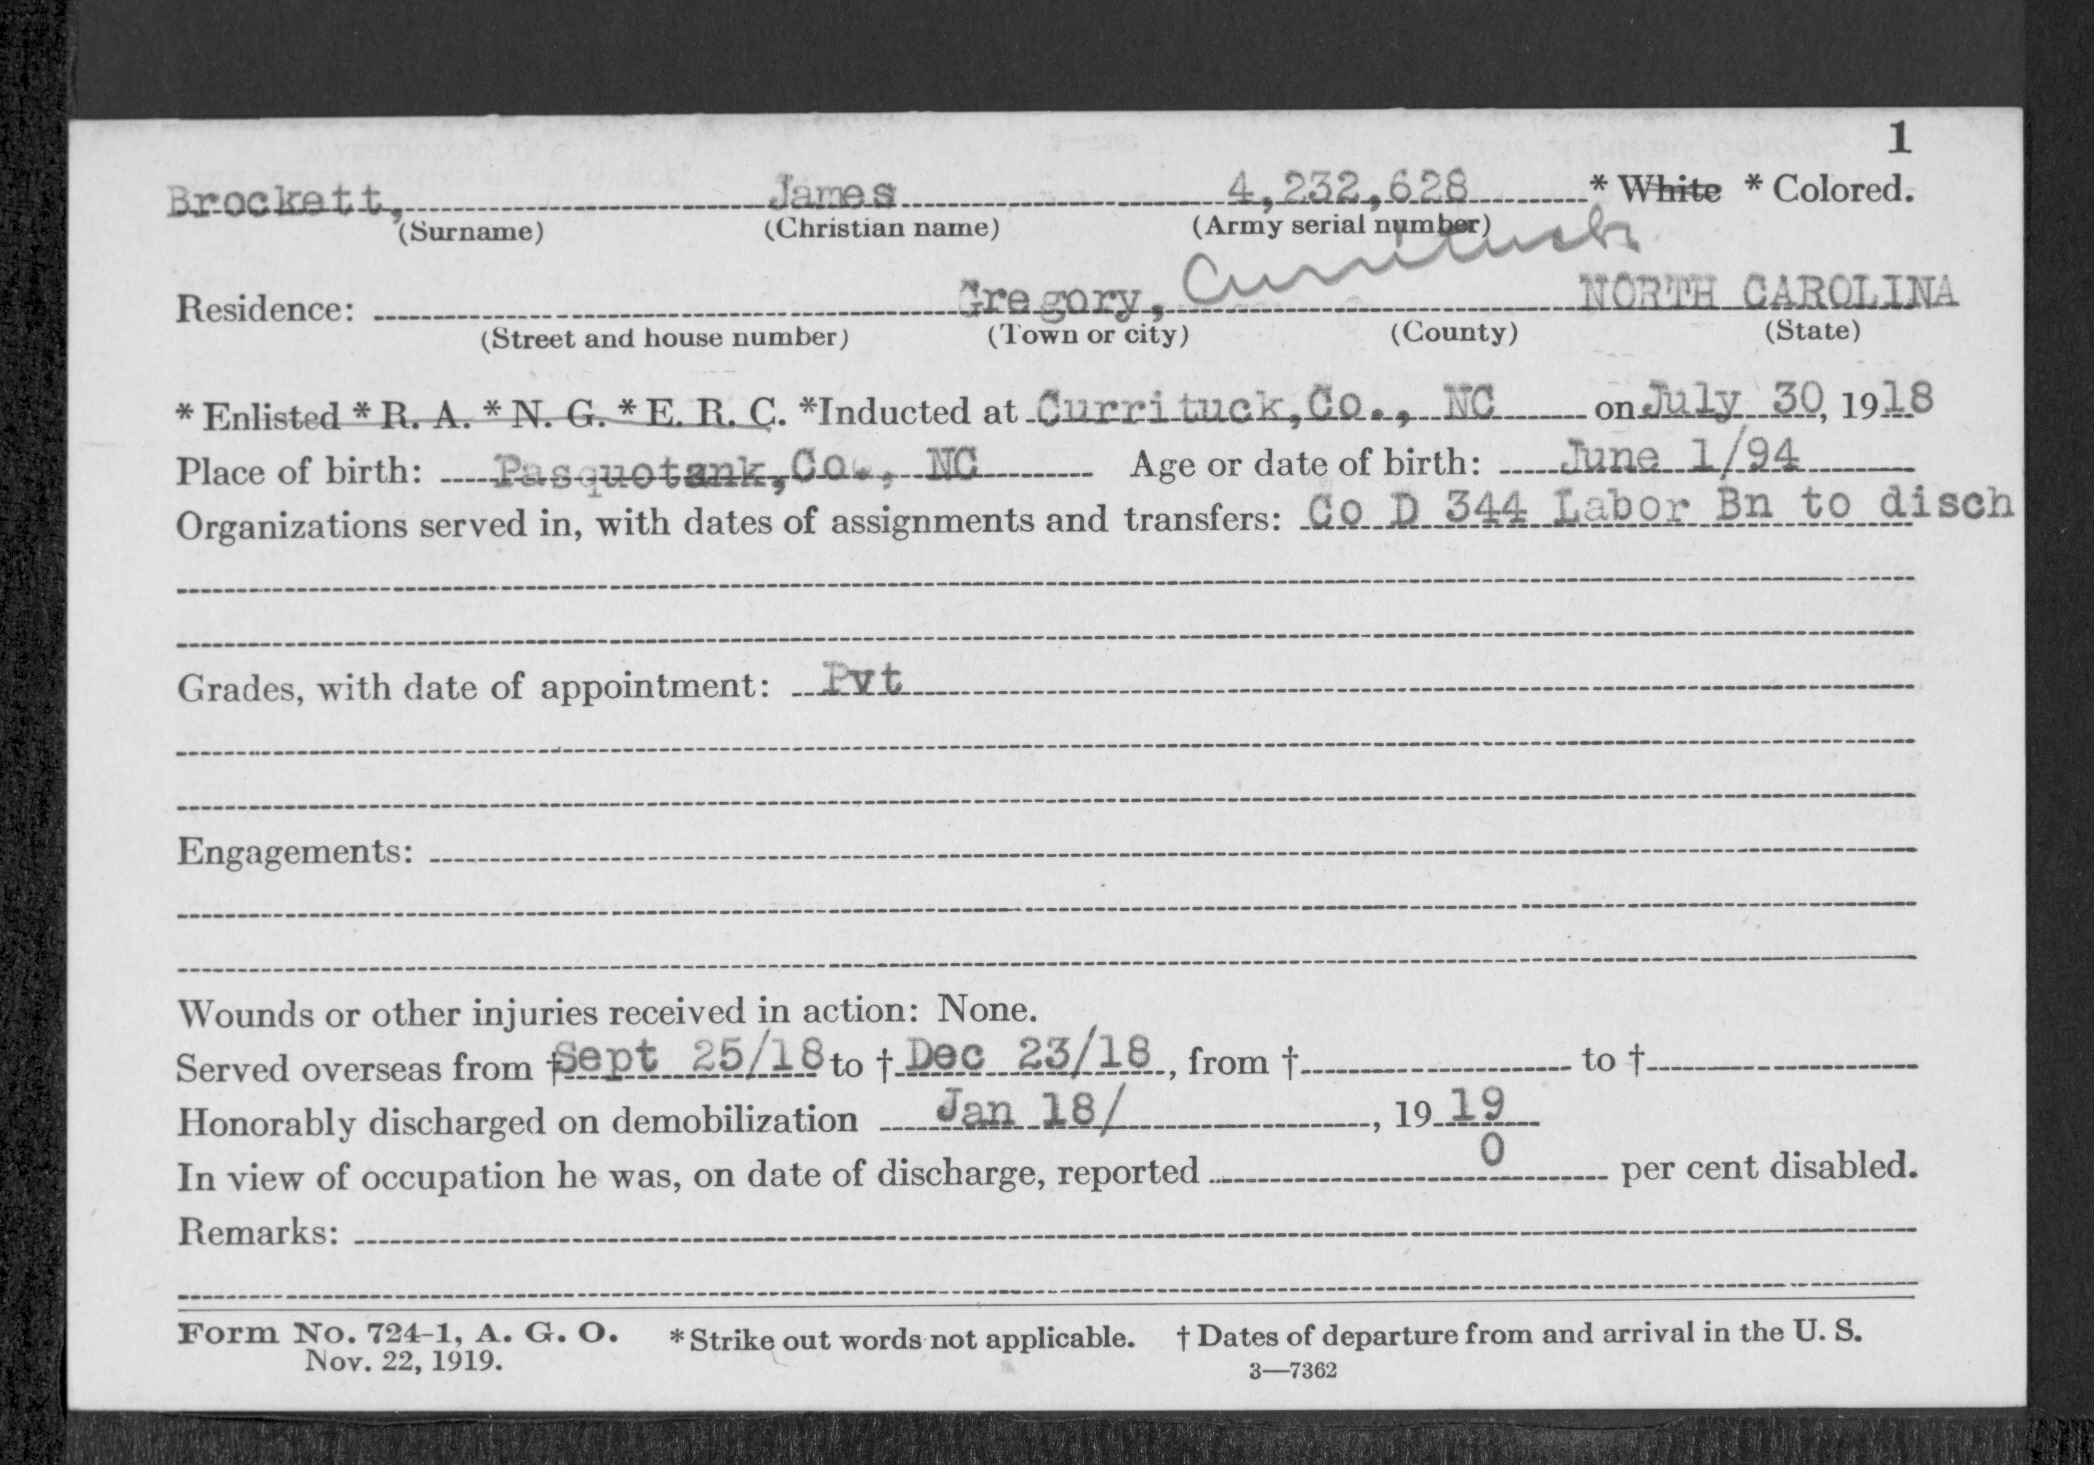 1
Brockett, James 4,232,628 * White * Colored.
(Surname) (Christian name) (Army serial number)
Residence: Gregory, Currituck NORTH CAROLINA
(Street and house number) (Town or city) (County) (State)
* Enlisted * R. A. * N. G. * E. R. C. *Inducted at Currituck,Co., NC on July 30, 1918
Place of birth: Pasquotank,Co., NC Age or date of birth: June 1/94
Organizations served in, with dates of assignments and transfers: Co D 344 Labor Bn to disch
Grades, with date of appointment: Pvt
Engagements:
Wounds or other injuries received in action: None.
Served overseas from † Sept 25/18 to † Dec 23/18, from † to †
Honorably discharged on demobilization Jan 18/, 1919
In view of occupation he was, on date of discharge, reported 0 per cent disabled.
Remarks:
Form No. 724-1, A. G. O. * Strike out words not applicable. † Dates of departure from and arrival in the U. S.
Nov. 22, 1919. 3—7362